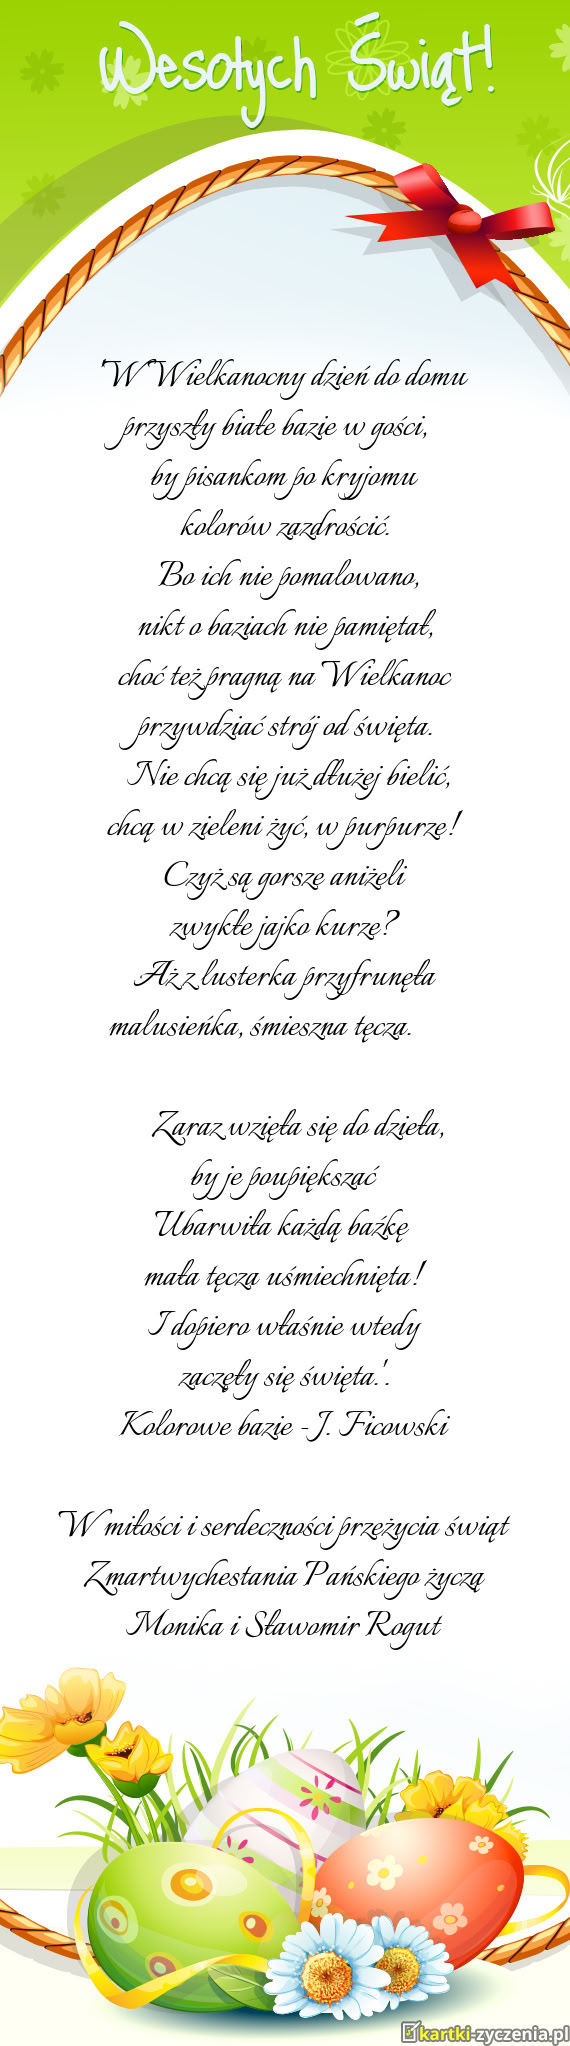 Wesołych Świąt!
'W Wielkanocny dzień do domu
przyszły białe bazie w gości,
by pisankom po kryjomu
kolorów zazdrościć.
Bo ich nie pomalowano,
nikt o baziach nie pamiętał,
choć też pragną na Wielkanoc
przywdziać strój od święta.
Nie chcą się już dłużej bielić,
chcą w zieleni żyć, w purpurze!
Czyż są gorsze aniżeli
zwykłe jajko kurze?
Aż z lusterka przyfrunęła
malusieńka, śmieszna tęcza.
Zaraz wzięła się do dzieła,
by je poupiększać
Ubarwiła każdą baźkę
mała tęcza uśmiechnięta!
I dopiero właśnie wtedy
zaczęły się święta.'.
Kolorowe bazie - J. Ficowski
W miłości i serdeczności przeżycia świąt
Zmartwychestania Pańskiego życzą
Monika i Sławomir Rogut
kartki-zyczenia.pl